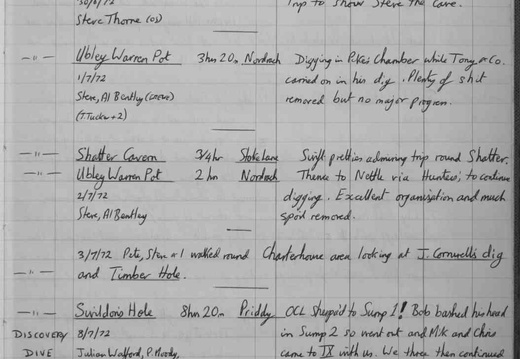 30/6/72 Trip to show Steve the cave.
Steve Thorne (OS)
—"— Ubley Warren Pot 3hrs 20m Nordrach Digging in Pikes Chamber while Tony & Co.
1/7/72 carried on in his dig. Plenty of shit
Steve, Al Bentley (CSCVS) removed but no major progress.
(T.Tucker + 2)
—"— Shatter Cavern 3/4 hr Stoke Lane Swift pretties admiring trip round Shatter.
—"— Ubley Warren Pot 2 hr Nordrach Thence to Nottle via Hunters; to continue
2/7/72 digging. Excellent organisation and much
Steve, Al Bentley spoil removed.
3/7/72 Pete, Steve & I walked round Charterhouse area looking at J. Cornwell's dig
—"— and Timber Hole.
—"— Swildon's Hole 8hrs 20m Priddy OCL Sherpa'd to Sump 1! Bob bashed his head
DISCOVERY 8/7/72 in Sump 2 so went out and Mik and Chris
DIVE Julian Walford, P.Moody, came to IX with us. We three then continued